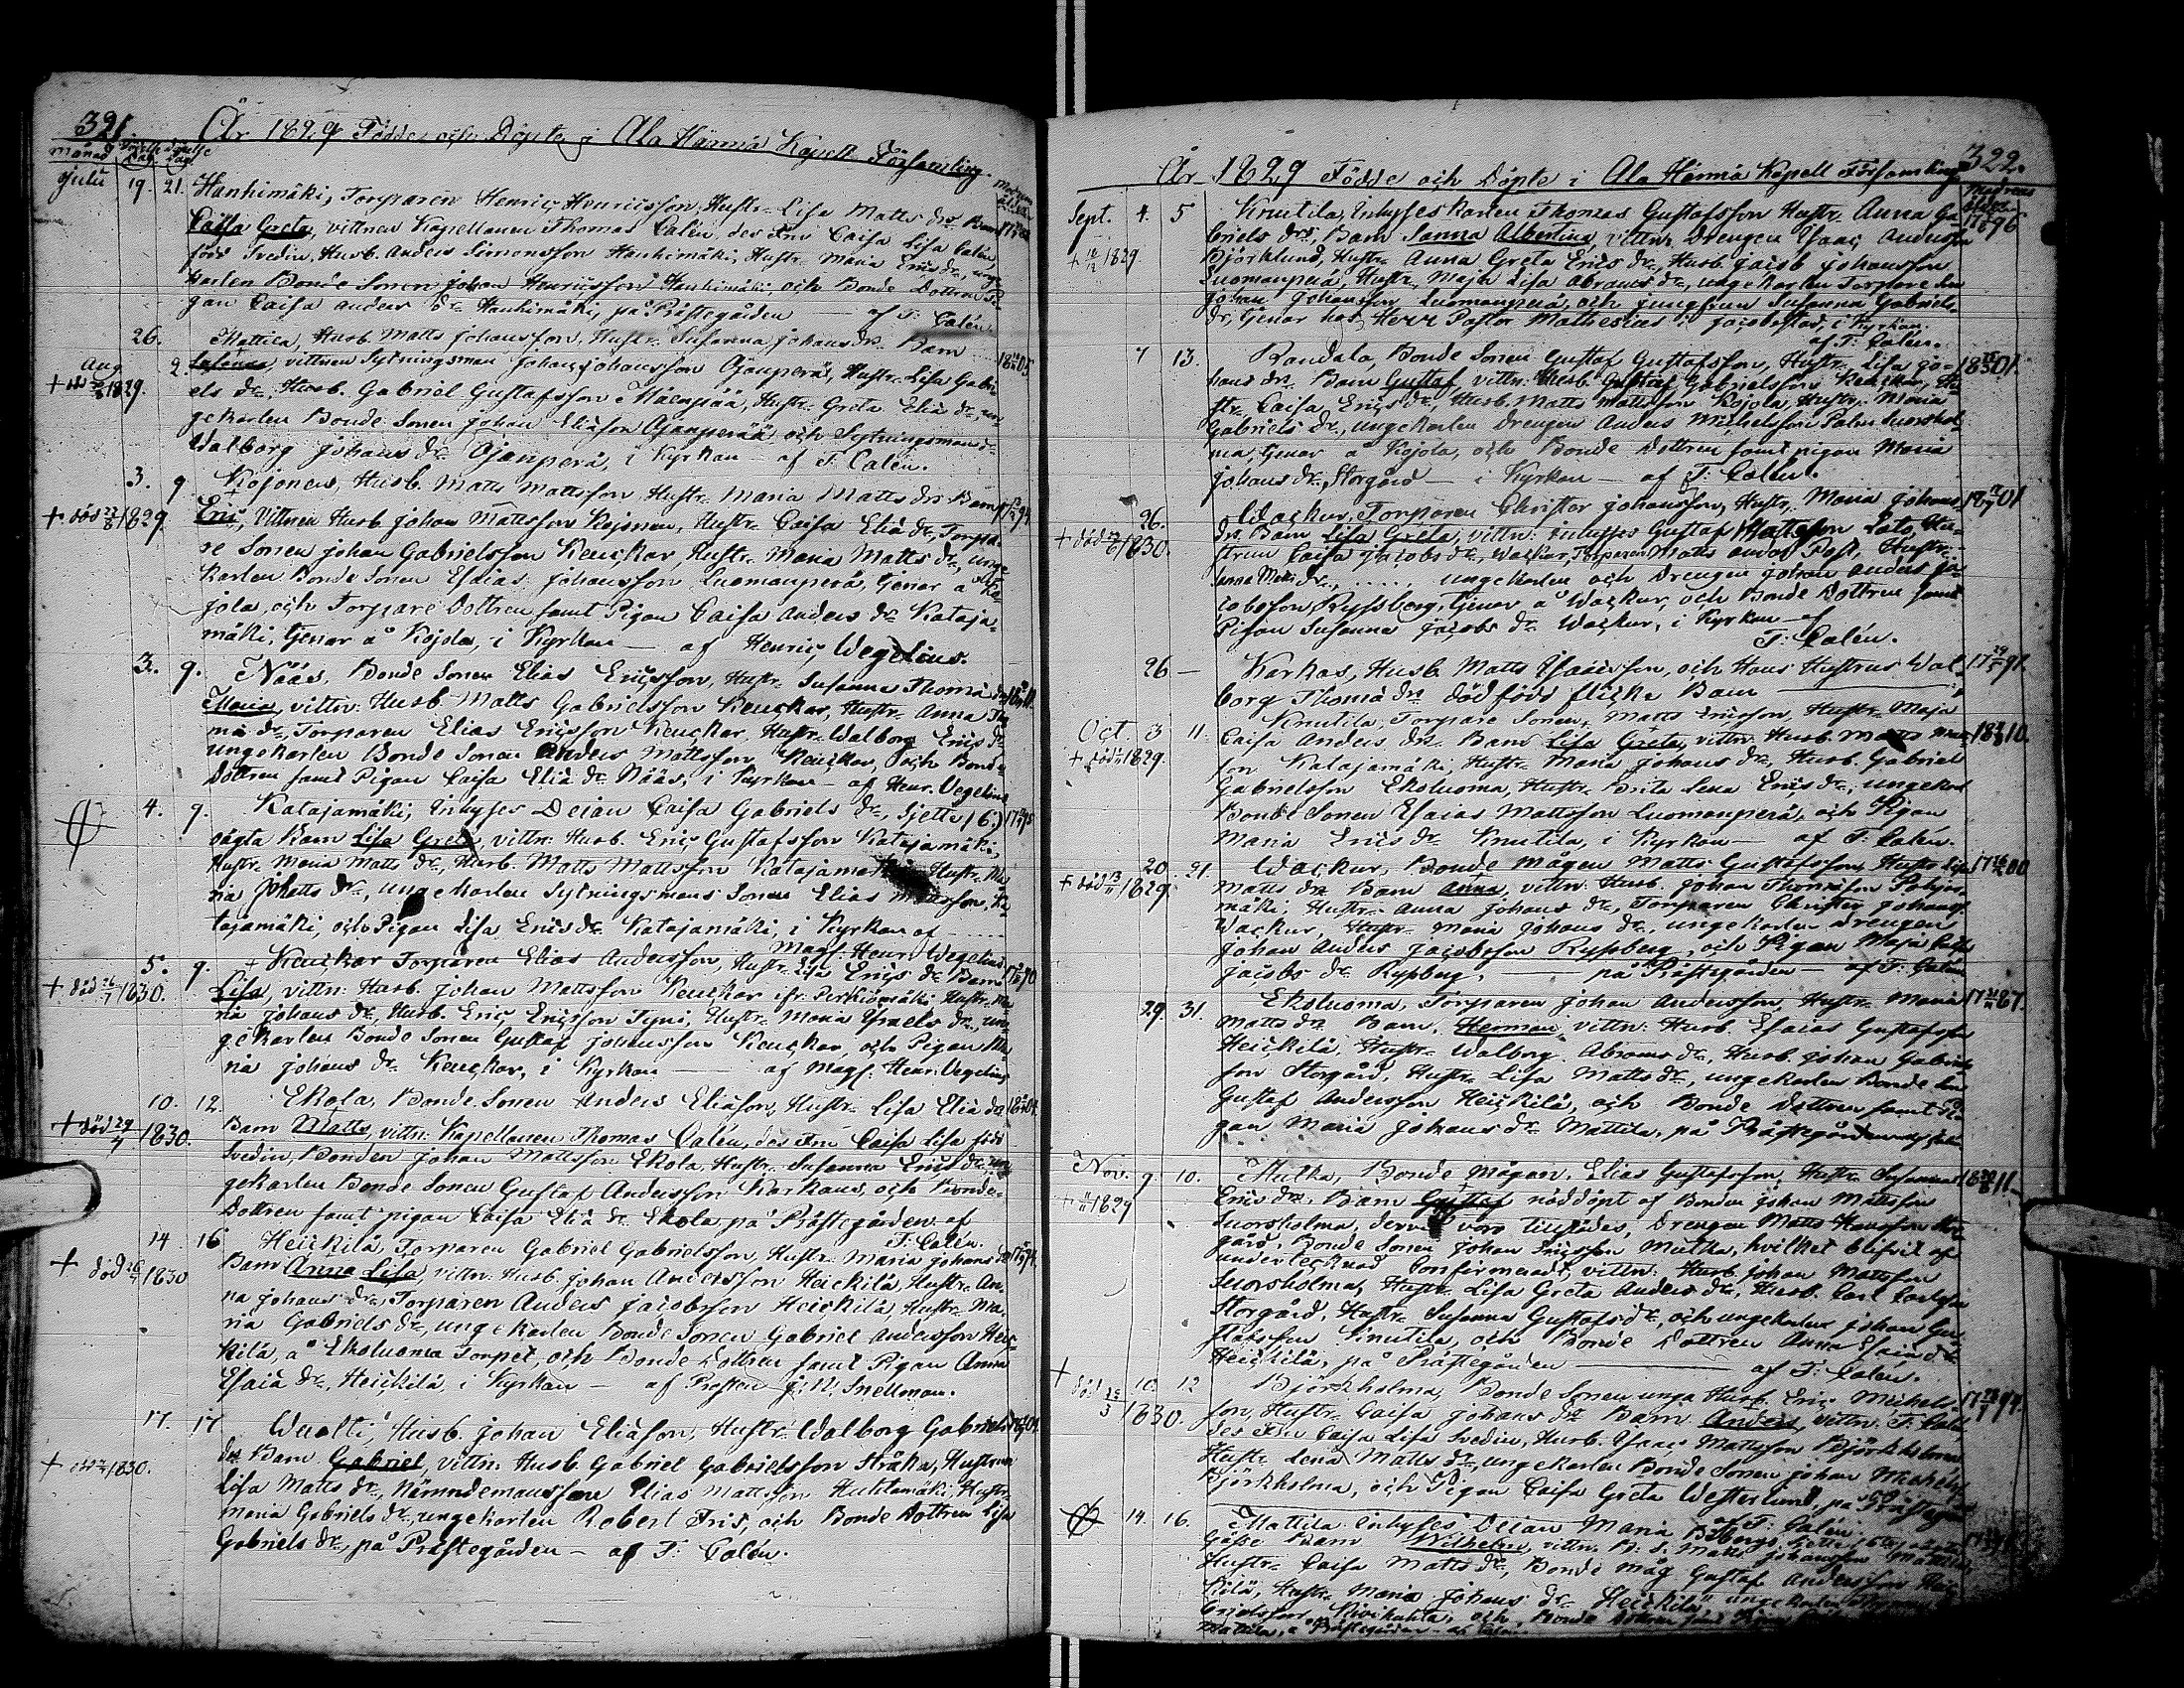 321.
År 1829 Födde och Döpte i Ala Härmä Kapell Församling.
månad Födelse Dag Döpelse Dag Modrens ålder
Julii 19. 21. Hanhimäki, Torparen Henric Henricsson, Hustr. Lisa Matts dr. Barn
Caisa Greta, vittnen Kapellanen Thomas Calén, des Fru Caisa Lisa Calén
föds Svedin, Husb. Anders Simonsson Hanhimäki, Hustr. Maria Erics dr., unge
Karlen Bonde Sonen Johan Henricsson Hanhimäki, och Bonde Dottren Pi-
gan Caisa Anders dr. Hanhimäki, på Prästegården — af T. Calén.
26. Mattila, Husb. Matts Johansson, Hustr. Susanna Johans dr. Barn
Aug. 2. vittnen Sytningsman Johan Johansson Ojanperä, Hustr. Lisa Gabri-
+ död 1829. els dr., Husb. Gabriel Gustafsson Mäenpää, Hustr. Greta Eliæ dr., un-
gekarlen Bonde Sonen Johan Eliæson Ojanperä och Sytningsmans dr.
Walborg Johans dr. Ojanperä, i Kyrkan — af T. Calén.
3. 9. Kojonen, Husb. Matts Mattsson, Hustr. Maria Matts dr. Barn
+ död 22/8 1829 Eric, Vittnen Husb. Johan Mattsson Kojonen, Hustr. Caisa Eliæ dr., Torpa-
re Sonen Johan Gabrielsson Keuckar, Hustr. Maria Matts dr., unge
Karlen Bonde Sonen Esaias Johansson Luomanperä, tjenar å Ko-
jola, och Torpare Dottren samt Pigan Caisa Anders dr. Kataja-
mäki, tjenar å Kojola, i Kyrkan — af Henric Wegelius.
3. 9. Nääs, Bonde Sonen Elias Ericsson, Hustr. Susanna Thomæ dr.
Maria, vittn: Husb. Matts Gabrielsson Keuckar, Hustr. Anna Tho-
mæ dr., Torparen Elias Ericsson Keuckar, Hustr. Walborg Erics dr.
ungekarlen Bonde Sonen Anders Mattsson Keuckar, och Bonde
Dottren samt Pigan Caisa Eliæ dr. Nääs, i Kyrkan — af Henr. Wegelius
4. 9. Katajamäki, Inhyses Deian Caisa Gabriels dr., Sjette (6.)
oägta Barn Lisa Greta, vittn: Husb. Eric Gustafsson Katajamäki,
Hustr. Maria Matts dr., Husb. Matts Mattsson Katajamäki, Hustr. Ma-
ria Matts dr., ungekarlen Sytningsmans Sonen Elias Mattsson, Ka-
tajamäki, och Pigan Lisa Erics dr. Katajamäki, i Kyrkan af
Mag: Henr. Wegelius
5. 9. Keuckar Torparen Elias Andersson, Hustr. Lisa Erics dr. Barn
+ död 1830. Lisa, vittn: Husb. Johan Mattsson Keuckar Hustr. Ma-
ria Johans dr., Husb. Eric Ericsson Tyni, Hustr. Maria Ysraels dr., un-
gekarlen Bonde Sonen Gustaf Johansson Keuckar, och Pigan Ma-
ria Johans dr. Keuckar, i Kyrkan — af Mag: Henr. Wegelius
10. 12. Ekola, Bonde Sonen Anders Eliæson, Hustr. Lisa Eliæ dr.
+ död 29/7 1830. Barn Matts, vittn: Kapellanen Thomas Calén, des Fru Caisa Lisa född
Svedin, Bonden Johan Mattsson Ekola, Hustr. Susanna Erics dr., un-
gekarlen Bonde Sonen Gustaf Andersson Karhaus, och Bonde-
Dottren samt pigan Caisa Eliæ dr. Ekola, på Prästegården af
T: Calén.
14 16 Heickilä, Torparen Gabriel Gabrielsson, Hustr. Maria Johans dr.
+ död 1830 Barn Anna Lisa, vittn: Husb. Johan Andersson Heickilä, Hustr. An-
na Johans dr., Torparen Anders Jacobsson Heickilä, Hustr. Ma-
ria Gabriels dr., ungekarlen Bonde Sonen Gabriel Andersson Heic-
kilä, å Ekoluoma Torpet, och Bonde Dottren samt Pigan Anna
Esaiæ dr., Heickilä, i Kyrkan — af Prosten J: N: Snellman.
17. 17 Wuolti, Husb. Johan Eliæson, Hustr. Walborg Gabriels
+ död 1830. dr. Barn Gabriel, vittn: Husb. Gabriel Gabrielsson Stråka, Hustrun
Lisa Matts dr., Nämndemansson Elias Mattsson Huhtamäki, Hustr.
Maria Gabriels dr., ungekarlen Robert Fris, och Bonde Dottren Lisa
Gabriels dr., på Prästegården — af T: Calén.
322.
År 1829 Födde och Döpte i Ala Härmä Kapell Församling
Modrens ålder
Sept. 4. 5 Knutila, Inhyses karlen Thomas Gustafsson Hustr. Anna Ga-
+ 1829 briels dr., Barn Sanna Albertina, vittn: Drengen Ysaac Andersson
Björklund, Hustr. Anna Greta Erics dr., Husb. Jacob Johansson
Luomanperä, Hustr. Maja Lisa Abrams dr., ungekarlen Torpare Son
Johan Johansson Luomanperä, och jungfrun Susanna Gabriels
dr., tjenar hos Herr Pastor Mathesius i Jacobstad, i Kyrkan.
af T: Calén.
7 13. Randala, Bonde Sonen Gustaf Gustafsson, Hustr. Lisa Jo-
hans dr. Barn Gustaf, vittn: Husb. Gustaf Gabrielsson Keuckar, Hu-
str. Caisa Erics dr., Husb. Matts Mattsson Kojola, Hustr. Maria
Gabriels dr., ungekarlen Drengen Anders Michelsson Palm Suorshol-
ma, tjenar å Kojola, och Bonde Dottren samt pigan Maria
Johans dr., Storgård — i Kyrkan — af T: Calén.
26. Wackur, Torparen Christer Johansson, Hustr. Maria Johans
+ död 1830. dr. Barn Lisa Greta, vittn: Inhyses Gustaf Mattsson Låt, Hu-
strun Caisa Jacobs dr., Wackur, Torparen Matts Post, Hustr.
Anna Matts dr., ..... ungekarlen och Drengen Johan Anders Ja-
cobsson Rypsberg, tjenar å Wackur, och Bonde Dottren samt
Pigan Susanna Jacobs dr. Wackur, i Kyrkan — af
T: Calén.
26 — Karhas, Husb. Matts Ysaacsson, och Hans Hustrus Wal-
borg Thomæ dr. död föds flicke Barn —
Oct. 3 11. Knutila, Torpare Sonen, Matts Ericsson, Hustr. Maja
+ död 1829. Caisa Anders dr. Barn Lisa Greta, vittn: Husb. Matts Matts-
son Katajamäki, Hustr. Maria Johans dr., Husb. Gabriel
Gabrielsson Ekoluoma, Hustr. Brita Lena Erics dr., ungekarl
Bonde Sonen Esaias Mattsson Luomanperä, och Pigan
Maria Erics dr. Knutila, i Kyrkan — af T: Calén.
20. 21. Wackur, Bonde Mågen Matts Gustafsson, Hustr. Lisa
+ död 1829. Matts dr. Barn Anna, vittn: Husb. Johan Thomæson Pohjan-
mäki, Hustr. Anna Johans dr., Torparen Christer Johansson
Wackur, Hustr. Maria Johans dr., ungekarlen Drengen
Johan Anders Jacobsson Rypsberg, och Pigan Maja
Jacobs dr. Rypsberg, på Prästegården — af T: Calén
29. 31. Ekoluoma, Torparen Johan Andersson, Hustr. Maria
Matts dr. Barn, Herman, vittn: Husb. Esaias Gustafsson
Heickilä, Hustr. Walborg Abrams dr., Husb. Johan Gabriels-
son Storgård, Hustr. Lisa Matts dr., ungekarlen Bonde Son
Gustaf Andersson Heickilä, och Bonde Dottren samt Pi-
gan Maria Johans dr. Mattila, på Prästegården af T: Calén
Nov. 9. 10. Mutka, Bonde Mågen Elias Gustafsson, Hustr. Susanna
+ 1829 Erics dr., Barn Gustaf nöddöpt af Bonden Johan Mattsson
Suorsholma, dervid voro tillstädes, Drengen Matts Hansson Stor-
gård, Bonde Sonen Johan Ericsson Mutka, hvilket blifvit af
undertecknad Confirmerad, vittn: Husb. Johan Mattsson
Suorsholma, Hustr. Lisa Greta Anders dr., Husb. Carl Carlsson
Storgård, Hustr. Susanna Gustafs dr., och ungekarlen Johan Gu-
stafsson Knutila, och Bonde Dottren Anna Esaiæ dr.
Heickilä, på Prästegården — af T: Calén.
10. 12 Björkholma, Bonde Sonen unga Husb. Eric Michels-
+ död 1830. son, Hustr. Caisa Johans dr. Barn Anders, vittn: T: Calén
des Fru Caisa Lisa Svedin, Husb. Ysaac Mattsson Björkholma
Hustr. Lena Matts dr., ungekarlen Bonde Sonen Johan Michelss.
Björkholma, och Pigan Caisa Greta Westerlund, på Prästegård
af T: Calén.
14. 16. Mattila Inhyses Deian Maria
Gåsse Barn Wilhelm, vittn: Matts Johansson Mattila,
Hustr. Caisa Matts dr., Bonde måg Gustaf Andersson Heic-
kilä, Hustr. Maria Johans dr. Heickilä, ungekarlen
brielsson Kivikahta, och Bonde Dottren samt Pigan
Mattila, å Prästegården — af Calén